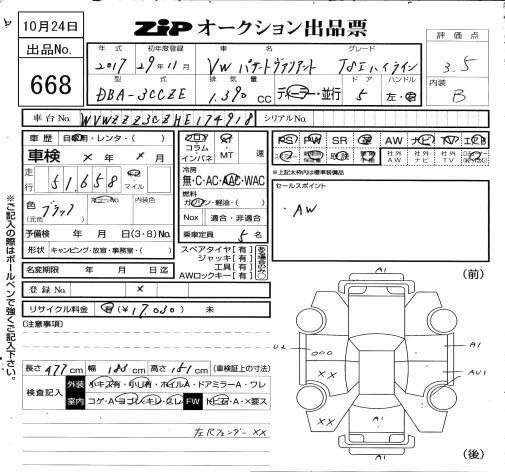 10月24日
ZIP オークション出品票
出品No.
668
年式 初年度登録 車名 グレード
2017 29年11月 VW パサートヴァリアント TSIハイライン
型式 排気量 ドア ハンドル
DBA-3CCZE 1,390 CC ディーラー・並行 5 左・右
評価点
3.5
内装
B
車台No. WVWZZZ3CZHE174918 シリアルNo.
車歴 自家用・レンタ・( )
車検 × 年 × 月
走行 51,658 マイル
色 (元色) ブラック 内装色
予備検 年 月 日(3・8)No.
形状 キャンピング・放宣・事務室・( )
フロア コラム インパネ AT MT 速
冷房
無・C・AC・AAC・WAC
燃料
ガソリン・軽油・( )
Nox 適合・非適合
乗車定員 5 名
PS PW SR 革 AW ナビ TV
社外AW 社外ナビ 社外TV
※上記太枠内は標準装備品
セールスポイント
・AW
スペアタイヤ【有】
ジャッキ【有】
工具【有】
AWロックキー【有】
ある場合のみ○
名変期限 年 月 日迄
登録No. ×
リサイクル料金 有(¥17,030) 未
[注意事項]
※ご記入の際はボールペンで強くご記入下さい。
長さ 477cm 幅 182cm 高さ 151cm (車検証上の寸法)
検査記入 外装 小キズ有・小凹有・ホイルA・ドアミラーA・ワレ
室内 コゲ・A・ヨゴレ・キレ・スレ FW トビ石・A・×要ス
左Rフェンダー ××
(前)
A1
U2
○○○
A1
××
AU1
××
A1
(後)